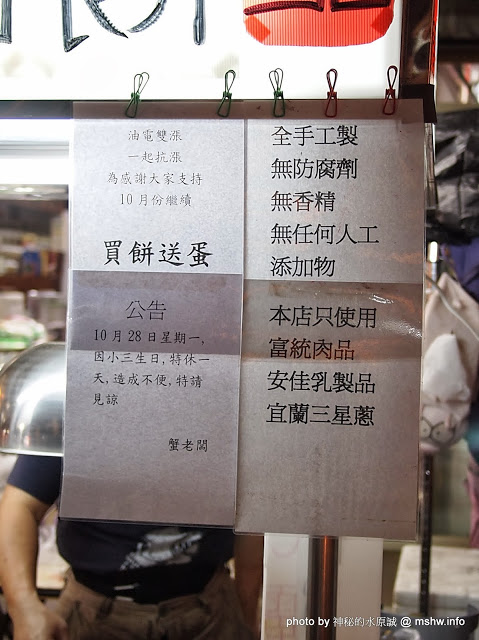 油電雙漲
一起抗漲
為感謝大家支持
10月份繼續
買餅送蛋
公告
10月28日星期一,
因小三生日,特休一
天,造成不便,特請
見諒
蟹老闆
全手工製
無防腐劑
無香精
無任何人工
添加物
本店只使用
富統肉品
安佳乳製品
宜蘭三星蔥
photo by 神秘的水原誠 @ mshw.info